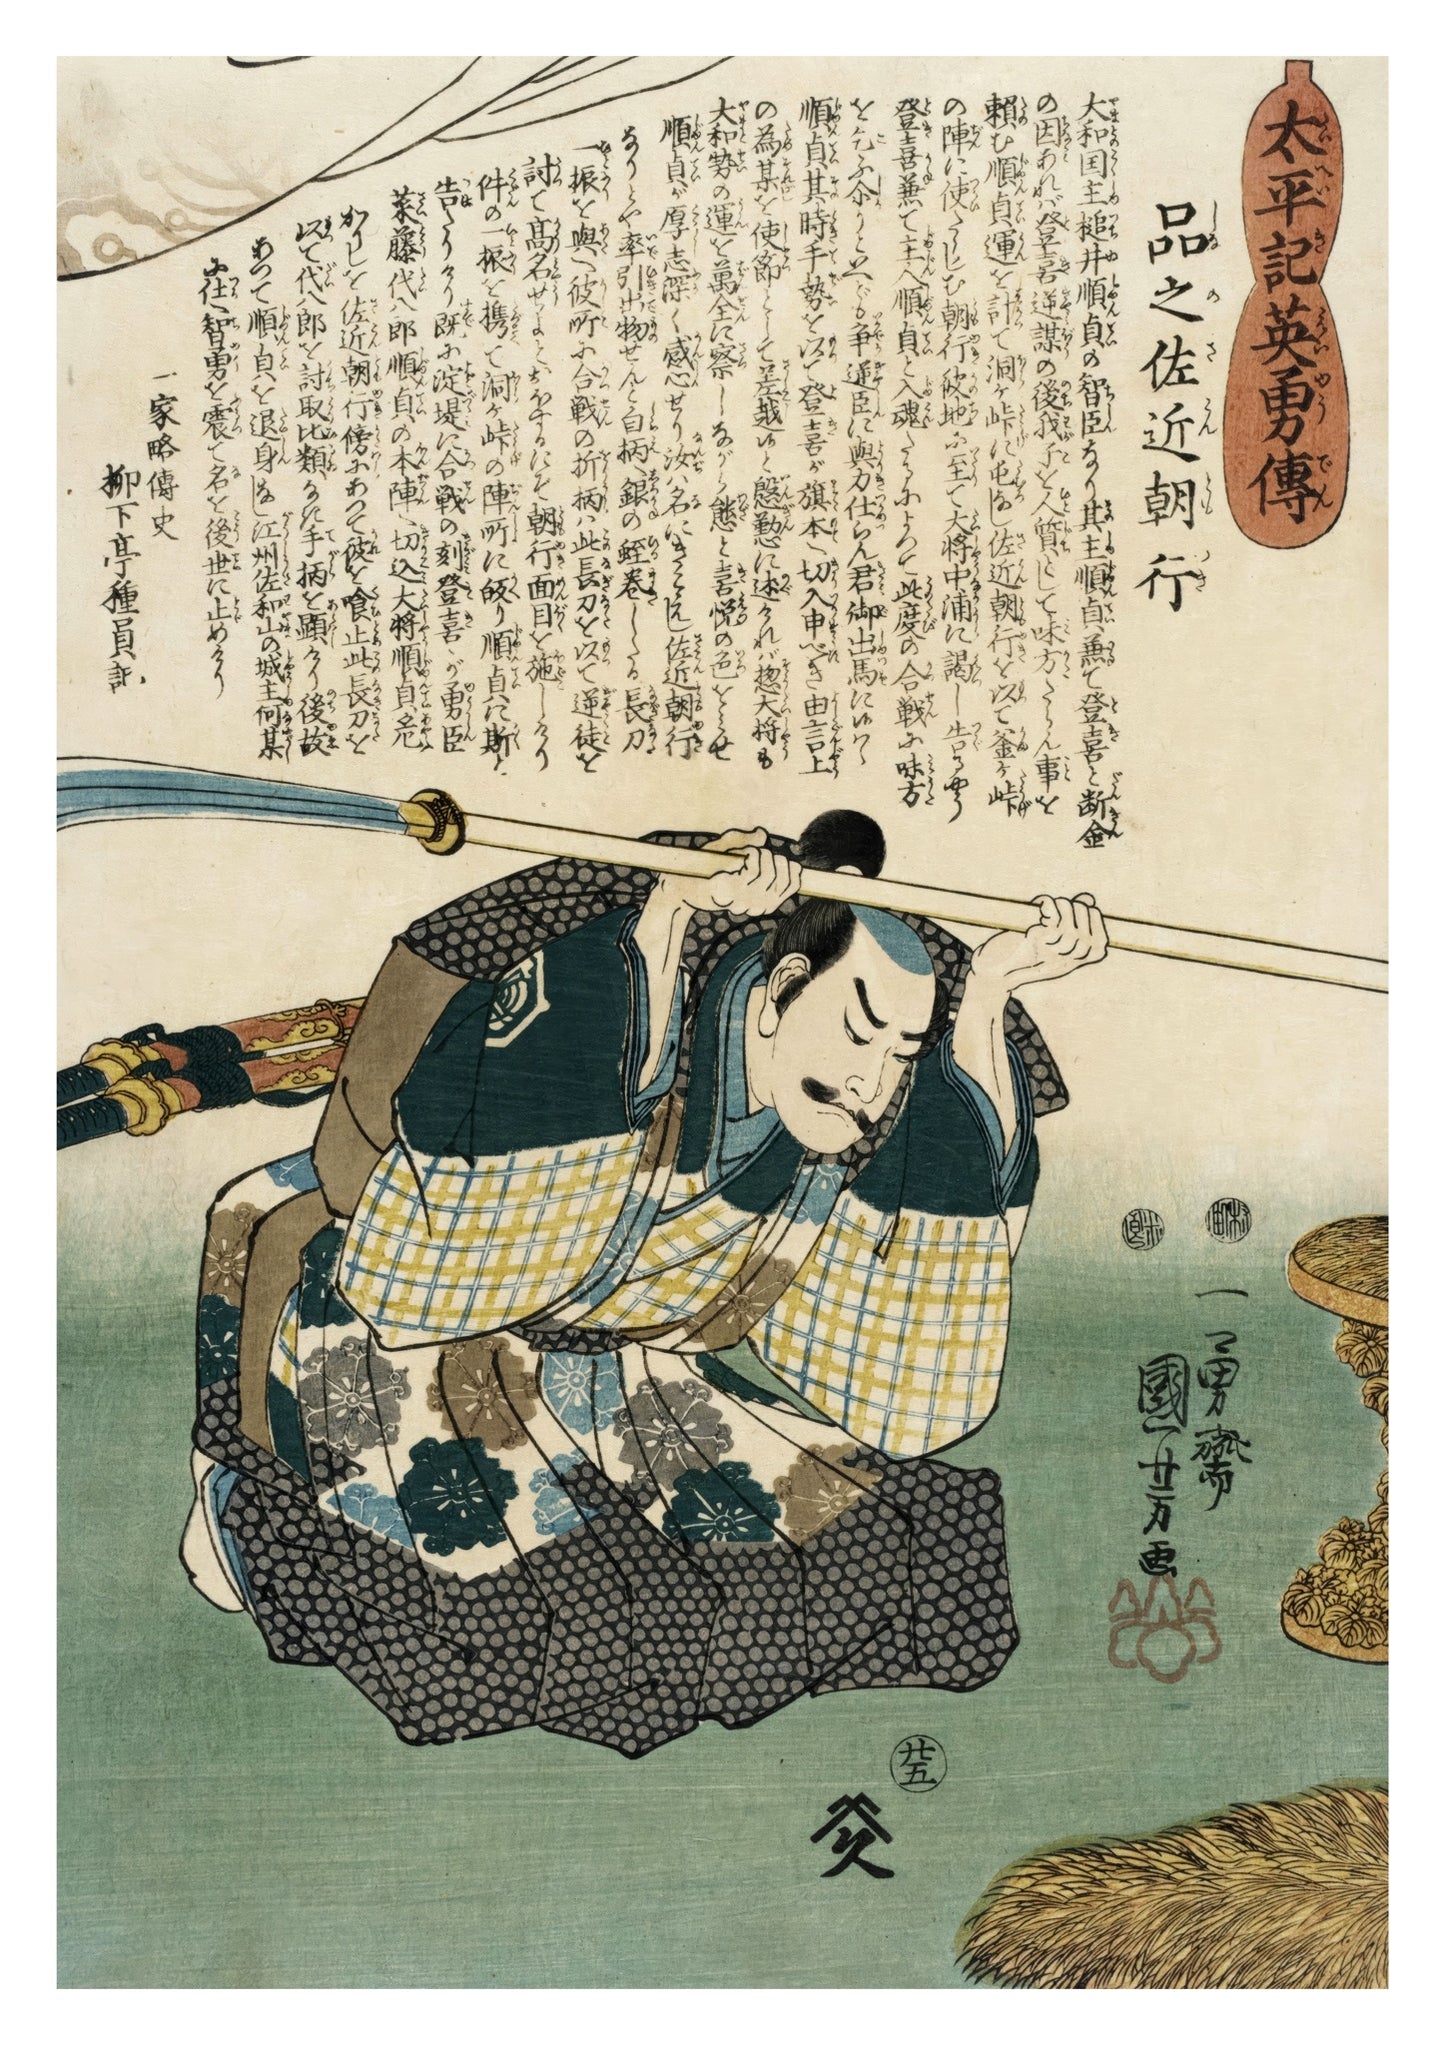 太平記英勇傳
品之佐近朝行
大和国主槌井順貞の智臣なり其主順貞兼て登喜と断金
の因あれバ登喜逆謀の後我子を人質として味方たらん事を
頼む順貞運を計て洞ヶ峠に屯なし佐近朝行を以て釜ヶ峠
の陣に使たらしむ朝行彼地に至て大将中浦に謁し告る やう
登喜兼て主人順貞と入魂たるによつて此度の合戦に味方
を乞ふ 争 逆臣に與力仕らん君御出馬
順貞其時手勢を以て登喜が旗本へ切入申べき由言上
の為某を使節として差越 と慇懃に述けれバ惣大将も
大和勢の運を萬全に察しながら態と喜悦の色を
順貞が厚志深く感心せり汝ハ名に 佐近朝行
なりとや率引出物せんと白柄へ銀の蛭巻したる長刀
一振を與へ彼所に合戦の折柄ハ此長刀を以て逆徒を
討て高名せよ 朝行面目を施しけり
件の一振を携て洞ヶ峠の陣所に皈り順貞に斯と
告たりけり既に淀堤に合戦の刻登喜が勇臣
菜藤代八郎順貞の本陣へ切込大将順貞危
かりしを佐近朝行傍にあつて彼を喰止此長刀を
以て代八郎を討取比類なき手柄を顕けり後故
あつて順貞を退身なし江州佐和山の城主何某
に仕へ智勇を震て名を後世に止めけり
一家略傳史
柳下亭種員記
一勇齋
國芳画
廿五